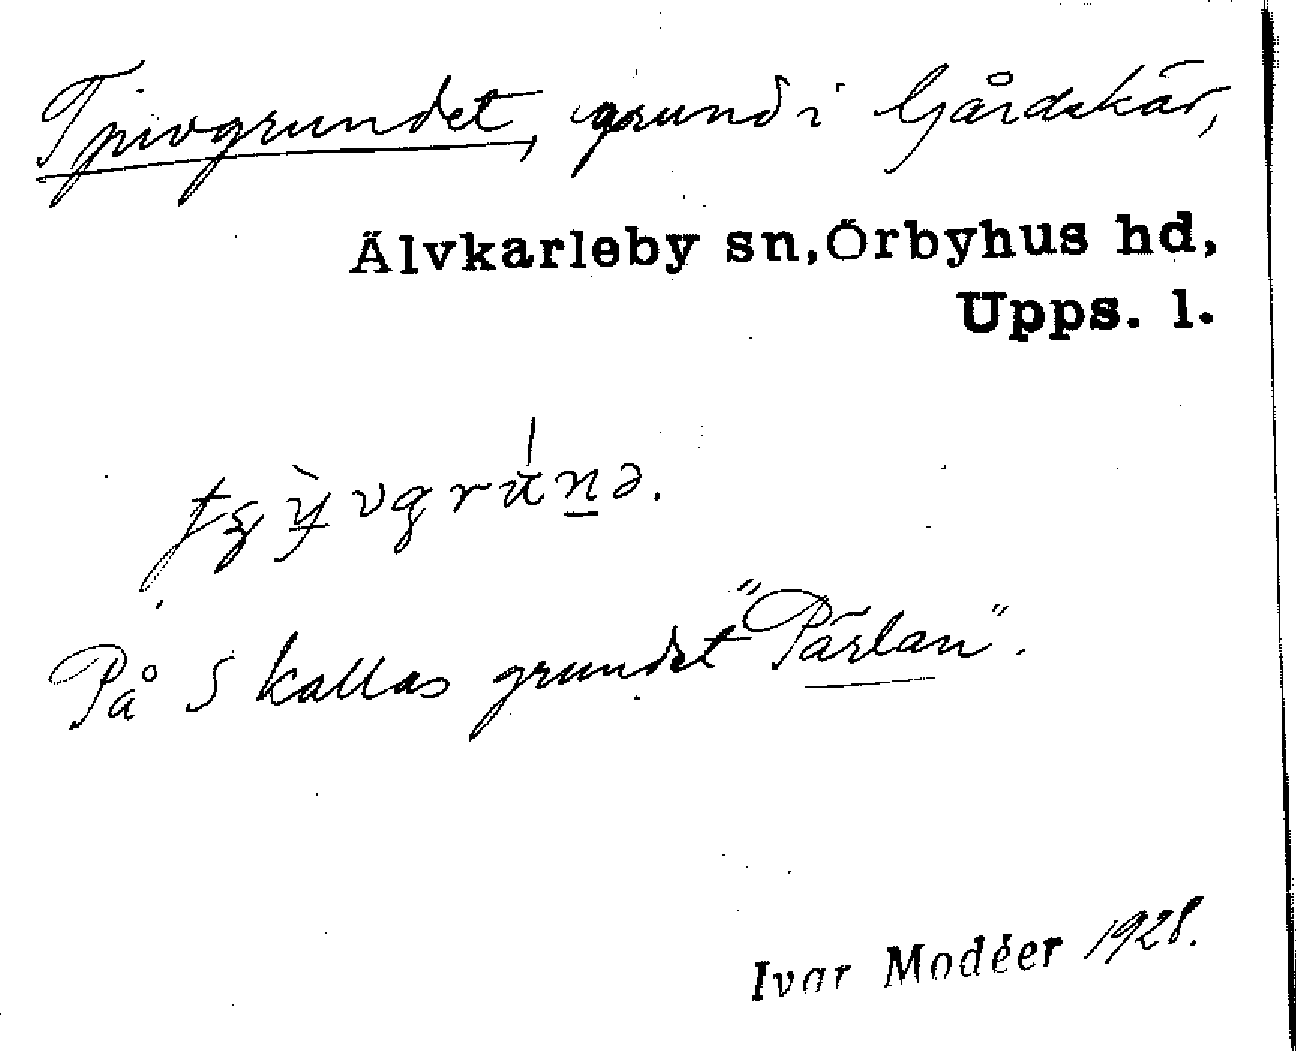 Tjuvgrundet, grund i Gårdskär,
Älvkarleby sn, Örbyhus hd,
Upps. l.
På S kallas grundet "Pärlan".
Ivar Modéer 1928.